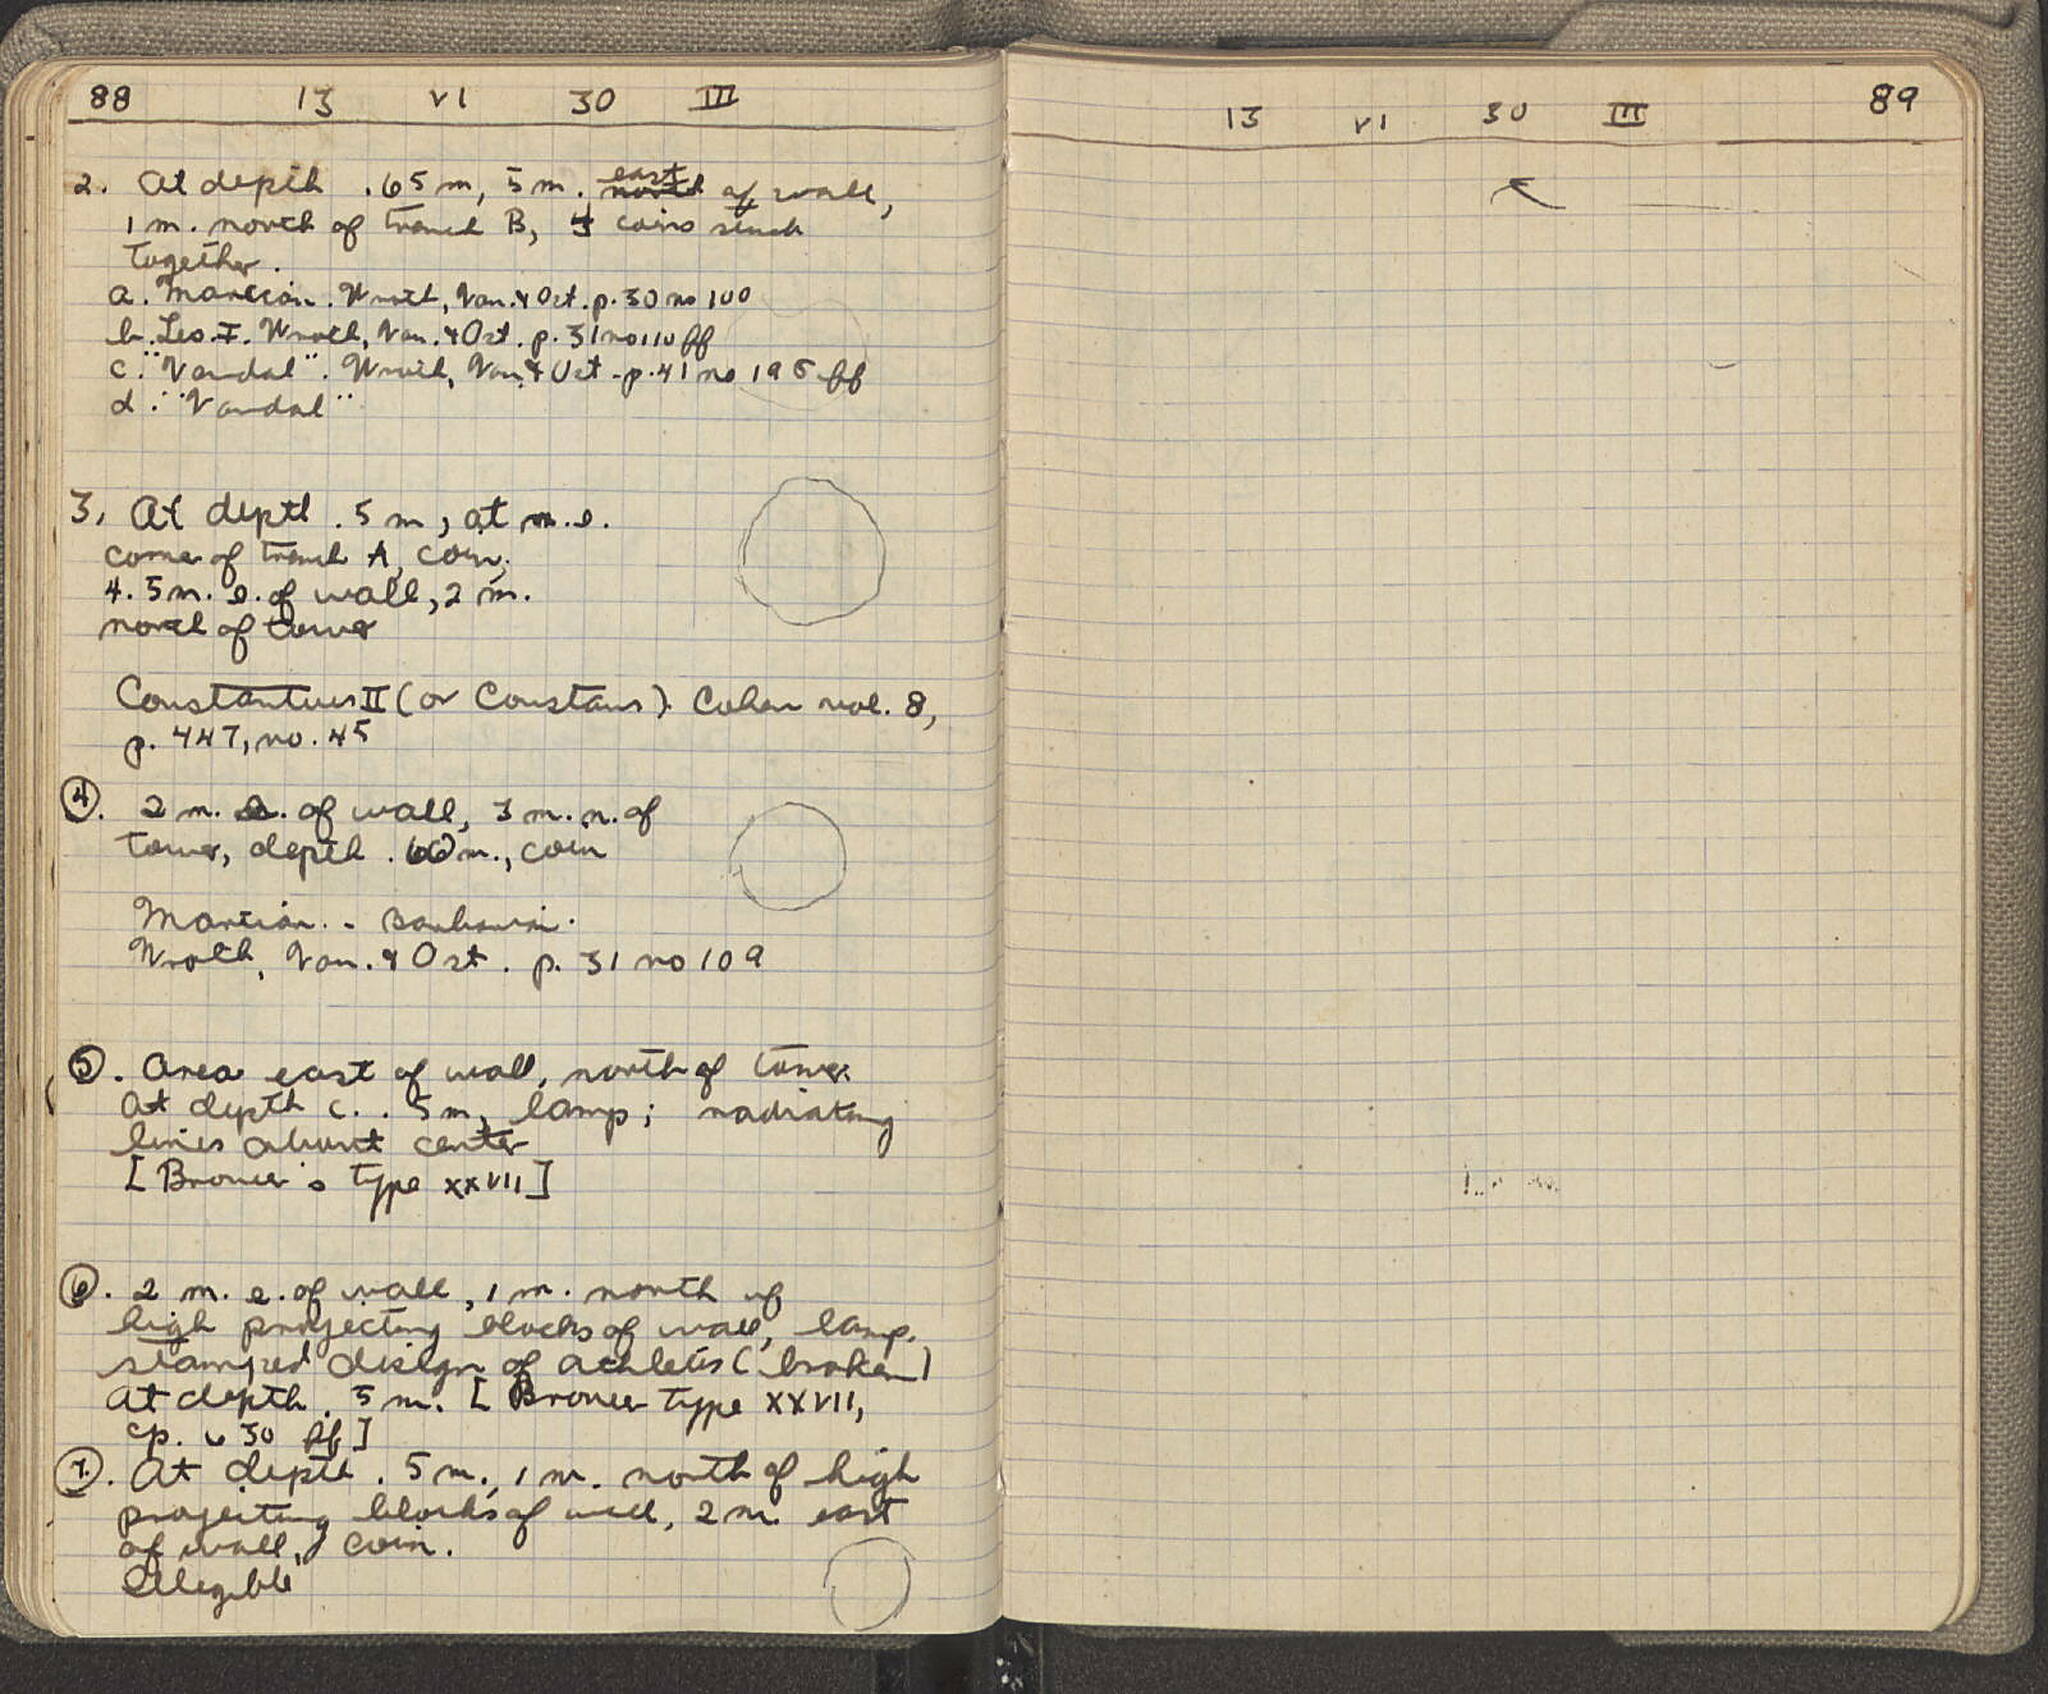 88 13 VI 30 III
2. At depth .65 m, 5 m. north east of wall,
1 m. north of trench B, 4 coins stuck
together.
a. Marcian. Wroth, Van. & Ost. p. 30 no 100
b. Leo I. Wroth, Van. & Ost. p. 31 no 110 ff
c. "Vandal". Wroth, Van. & Ost. p. 41 no 198 ff
d. "Vandal"
3. At depth .5 m, at n.e.
corner of trench A, coin,
4.5 m. e. of wall, 2 m.
north of tower
Constantius II (or Constans). Cohen vol. 8,
p. 447, no. 45
4. 2 m. e. of wall, 3 m. n. of
tower, depth .60 m., coin
Marcian. -
Wroth, Van. & Ost. p. 31 no 109
5. Area east of wall, north of tower.
At depth c. .5 m, lamp; radiating
lines about center
[Broneer's type XXVII]
6. 2 m. e. of wall, 1 m. north of
high projecting blocks of wall, lamp.
stamped design of athletes (broken)
At depth .5 m. [Broneer type XXVII,
cp. 630 ff]
7. At depth .5 m., 1 m. north of high
projecting blocks of wall, 2 m. east
of wall, coin.
Illegible
13 VI 30 III 89